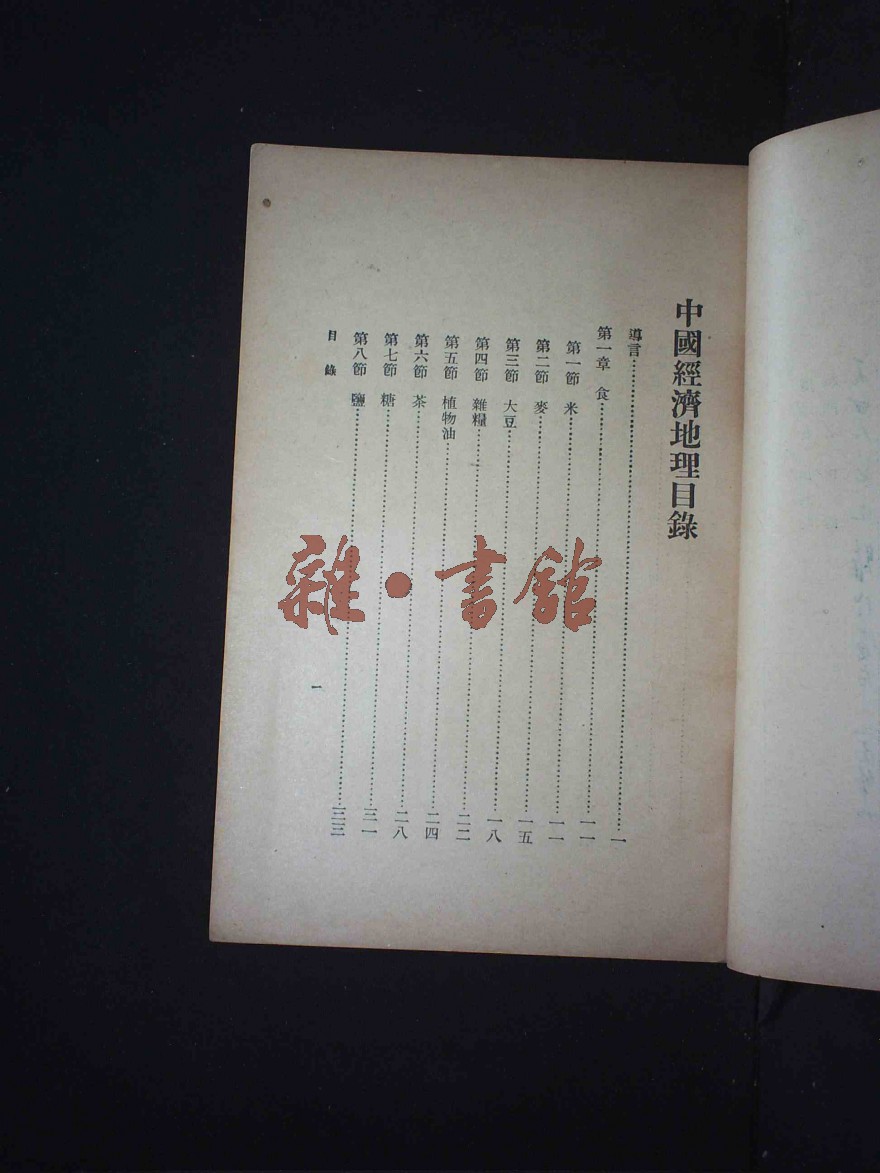 中國經濟地理目錄
導言……一
第一章 食……一一
第一節 米……一一
第二節 麥……一五
第三節 大豆……一八
第四節 雜糧……二二
第五節 植物油……二四
第六節 茶……二八
第七節 糖……三一
第八節 鹽……三三
目錄
一
雜·書館